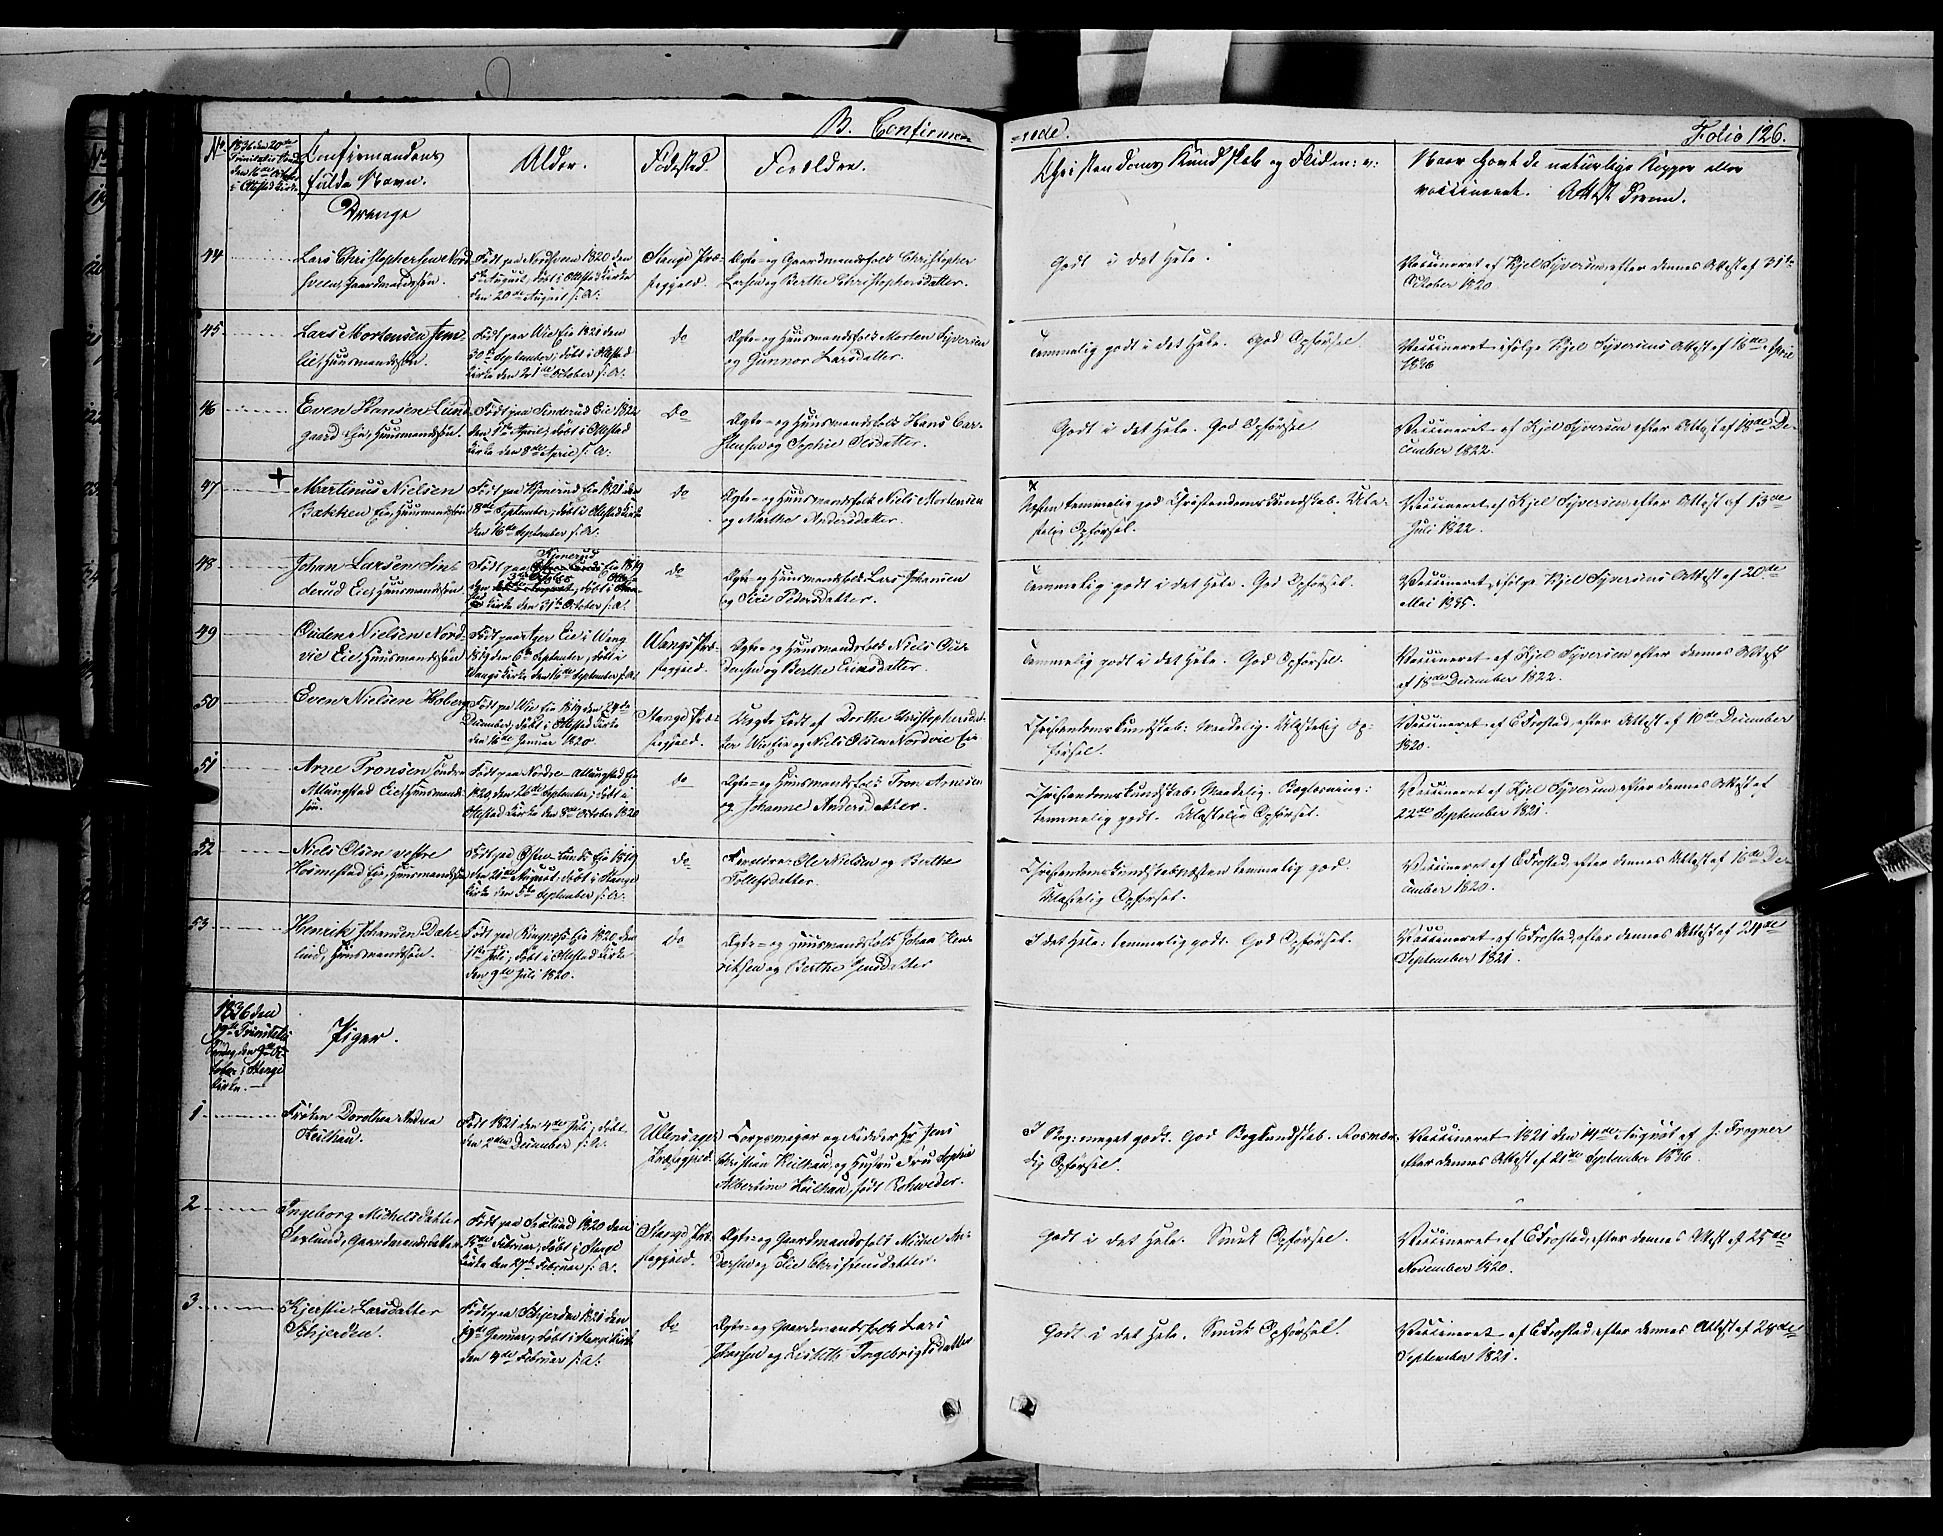 B. Confirme-
-rede.
Folio 126.
No
1836 den 20de
Trinitatis Søndag
den 16de October
i Ottestad Kirke
Confirmandens
fulde Navn.
Alder.
Fødested.
Forældre.
Christendoms Kundskab og Flid m: v:
Naar havt de naturlige Kopper eller
vaccineret. Attest derom.
Drenge
44
Lars Christophersen Nord-
sveen, Gaardmandssøn.
Født paa Nordsveen 1820 den
5te August, døbt i Ottestad Kirke
den 20de August s: A:
Stange Præ-
stegjeld.
Ægte- og Gaardmandsfolk Christopher
Larsen og Berthe Christophersdatter.
Godt i det Hele.
Vaccineret af Kjel Syversen efter dennes Attest af 31te
October 1820.
45
Lars Mortensen Jem-
lie, Huusmandssøn.
Født paa Wie Eie 1821 den
30te September, døbt i Ottestad
Kirke den 21de October s: A:
do
Ægte- og Huusmandsfolk Morten Syversen
og Gunnor Larsdatter.
Temmelig godt i det Hele. God Opførsel.
Vaccineret ifølge Kjel Syversens Attest af 16de April
1826
46
Even Hansen Lund-
gaard Eie, Huusmandssøn.
Født paa Sinderud Eie 1822
den 1ste April, døbt i Ottestad
Kirke den 8de April s: A:
do
Ægte- og Huusmandsfolk Hans Car-
stensen og Sophie Olsdatter.
Godt i det Hele. God Opførsel
Vaccineret af Kjel Syversen efter Attest af 18de De-
cember 1822.
47
+
Martinus Nielsen
Bækken Eie, Huusmandssøn
Født paa Kjonerud Eie 1821 den
8de September, døbt i Ottestad Kirke
den 16de September s: A:
do
Ægte- og Huusmandsfolk Niels Mortensen
og Marthe Andersdatter.
x
Næsten temmelig god Christendoms Kundskab. Ula-
stelig Opførsel.
Vaccineret af Kjel Syversen efter Attest af 13de
Juli 1822.
48
Johan Larsen Sin-
derud Eie, Huusmandssøn
Kjonerud
Født paa Eie 1819
den 3de October, døbt i Otte-
stad Kirke den 31te October s: A:
do
Ægte- og Huusmandsfolk Lars Johansen
og Siri Pedersdatter.
Temmelig godt i det Hele. God Opførsel.
Vaccineret ifølge Kjel Syversens Attest af 20de
Mai 1835.
49
Ouden Nielsen Nord-
vie Eie, Huusmandssøn
Født paa Ager Eie i Wang
1819 den 6te September, døbt i
Wangs Kirke den 16de September s: A:
Wangs Præ-
stegjeld.
Ægte- og Huusmandsfolk Niels Ou-
densen og Berthe Eriksdatter.
Temmelig godt i det Hele. God Opførsel.
Vaccineret af Kjel Syversen efter dennes Attest
af 18de December 1822.
50
Even Nielsen Hoberg
Født paa Wie Eie 1819 den 29de
December, døbt i Ottestad Kirke
den 16de Januar 1820.
Stange Præ-
stegjeld.
Uægte født af Dorthe Christophersdat-
ter Wie Eie og Niels Olsen Nordvie Eie
Christendomskundskab: Maadelig. Ulastelig Op-
førsel.
Vaccineret af C Frostad, efter Attest af 10de December
1820.
51
Arne Tronsen søndre
Atlungstad Eie, Huusmands-
søn.
Født paa Nordre-Atlungstad Eie
1820, den 26de September, døbt i
Ottestad Kirke den 8de October 1820
do
Ægte- og Huusmandsfolk Tron Arnesen
og Johanne Andersdatter.
Christendomskundskab: Maadelig. Boglæsning:
temmelig godt. Ulastelig Opførsel.
Vaccineret af Kjel Syversen efter dennes Attest af
22de September 1821.
52
Niels Olsen vestre
Hormestad Eie, Huusmandssøn
Født paa Østre-Lund Eie 1819
den 21de August, døbt i Stange
Kirke den 5te September s: A:
do
Forældre: Ole Nielsen og Berthe
Tollefsdatter.
Christendoms Kundskab næsten temmelig god.
Ulastelig Opførsel.
Vaccineret af C Frostad, efter dennes Attest af 16de De-
cember 1820.
53
Henrik Johansen Dah-
lund, Huusmandssøn.
Født paa Ringnæs Eie 1820, den
1ste Juli, døbt i Ottestad Kirke
den 9de Juli 1820.
do
Ægte- og Huusmandsfolk Johan Hen-
riksen og Berthe Jensdatter
I det Hele: temmelig godt. God Opførsel.
Vaccineret af C Frostad, efter dennes Attest af 24de
September 1821.
1836 den
19de Trinitatis
Søndag den 9de Oc-
tober i Stange
Kirke.
Piger.
1
Frøken Dorothea Andrea
Keilhau.
Født 1821 den 4de Juli, døbt
den 2den December s: A:
Ullensager
Præstegjeld.
Corpsmajor og Ridder Hr Jens
Christian Keilhau, og Hustru Fru Sophie
Albertine Keilhau, født Rohweder.
I Bog: meget godt. God Bogkundskab. Rosvær-
dig Opførsel.
Vaccineret 1821 den 14de August af J: Frogner
efter dennes Attest af 21de September 1836.
2
Ingeborg Michelsdatter
Frølund, Gaardmandsdatter
Født paa Frølund 1820 den
15de Februar, døbt i Stange
Kirke den 27de Februar s: A:
Stange Præ-
stegjeld.
Ægte- og Gaardmandsfolk Michel An-
dersen og Elie Christensdatter.
Godt i det Hele. Smuk Opførsel.
Vaccineret af C Frostad, efter dennes Attest af 25de
November 1820.
3
Kjerstie Larsdatter
Skjerden.
Født paa Skjerden 1821 den
19de Januar, døbt i Stange Kirke
den 4de Februar s: A:
do
Ægte- og Gaardmandsfolk Lars
Johnsen og Lisbeth Ingebrigtsdatter
Godt i det Hele. Smuk Opførsel.
Vaccineret af C Frostad, efter dennes Attest af 28de
September 1821.